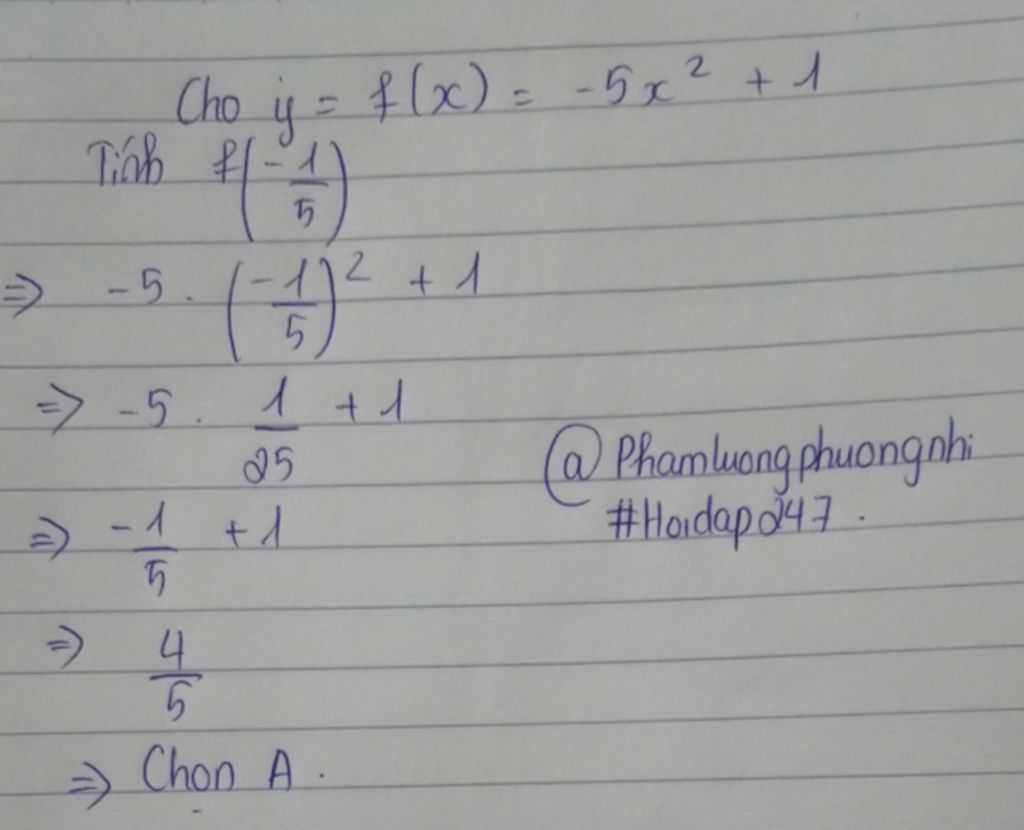 Cho y = f(x) = -5x² + 1
Tính f(-1/5)
=> -5 . (-1/5)² + 1
=> -5 . 1/25 + 1
=> -1/5 + 1
@Phamluongphuongnhi
#Hoidap247.
=> 4/5
=> Chọn A.